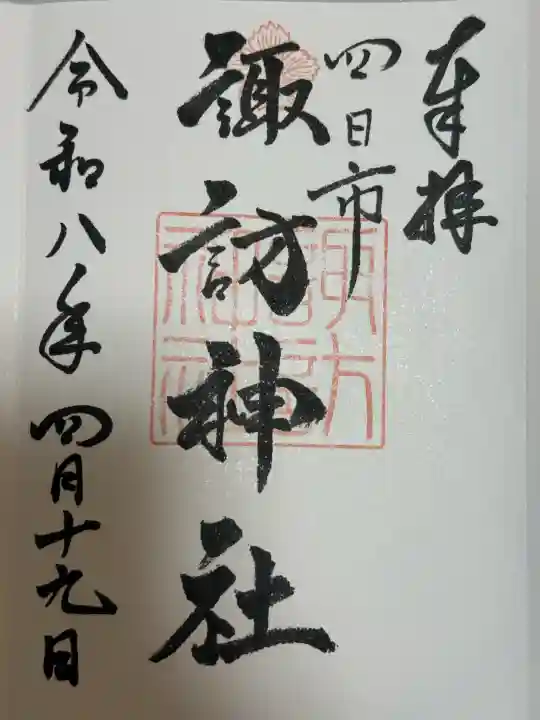 奉拝
四日市
諏訪神社
令和八年四月十九日
諏訪神社